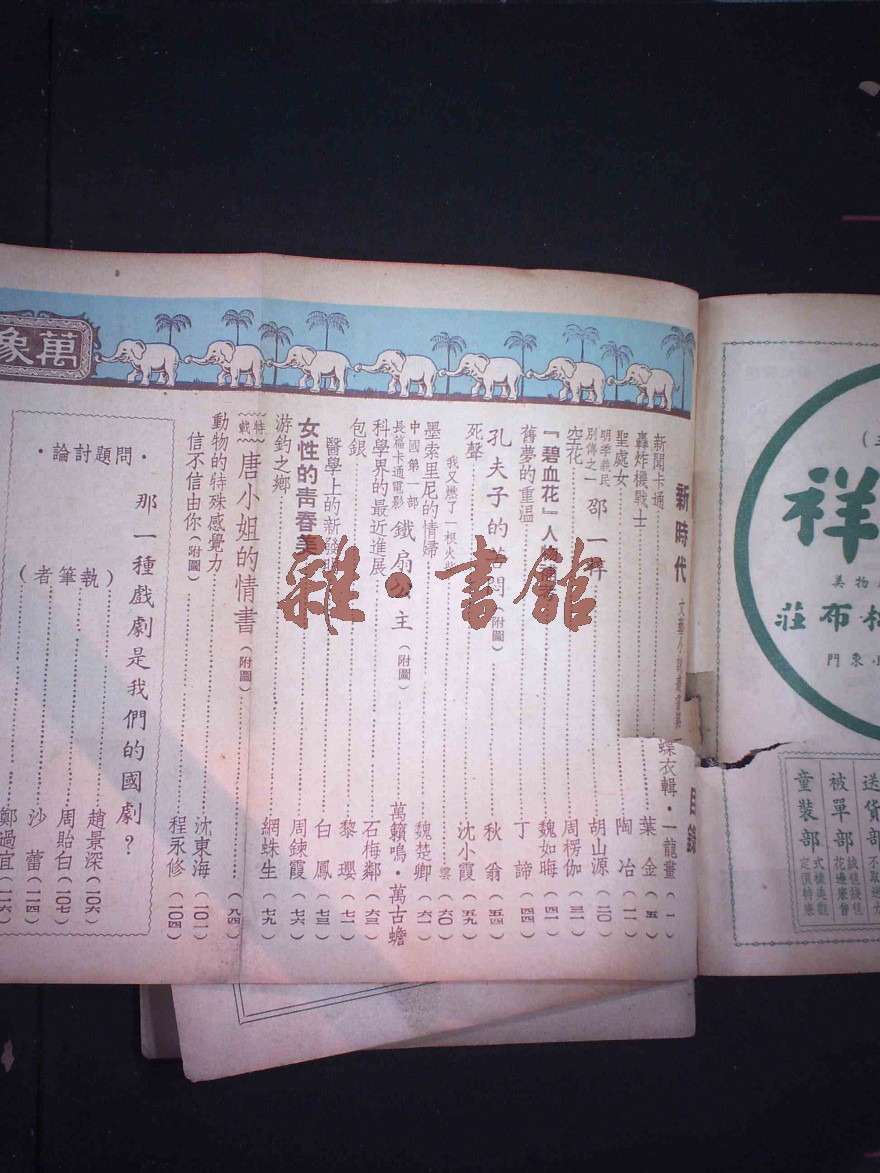 萬象
新時代
目錄
新聞卡通 蝶衣輯·一龍畫(一)
轟炸機戰士 葉金(五)
聖處女 陶冶(一一)
明季義民別傳之一 邵一梓 胡山源(二〇)
空花 周楞伽(三一)
『碧血花』人物 魏如晦(四一)
舊夢的重温 丁諦(四四)
孔夫子的苦悶(附圖) 秋翁(五四)
死聲 沈小霞(五九)
我又燃了一根火 雲(六〇)
墨索里尼的情婦 魏楚卿(六一)
中國第一部長篇卡通電影 鐵扇公主(附圖) 萬籟鳴·萬古蟾
科學界的最近進展 石梅鄰(六三)
包銀 黎瓔(七一)
醫學上的新發 白鳳(七三)
女性的青春美 周鍊霞(七六)
游釣之鄉 網蛛生(七九)
特載 唐小姐的情書(附圖) (九四)
動物的特殊感覺力 沈東海(一〇一)
信不信由你(附圖) 程永修(一〇四)
·問題討論·
那一種戲劇是我們的國劇?
(執筆者)
趙景深(一〇六)
周貽白(一〇七)
沙蕾(一一四)
鄭過宜(一一六)
雜·書館
祥
布莊
東門
送貨部
被單部
童裝部 式樣美觀